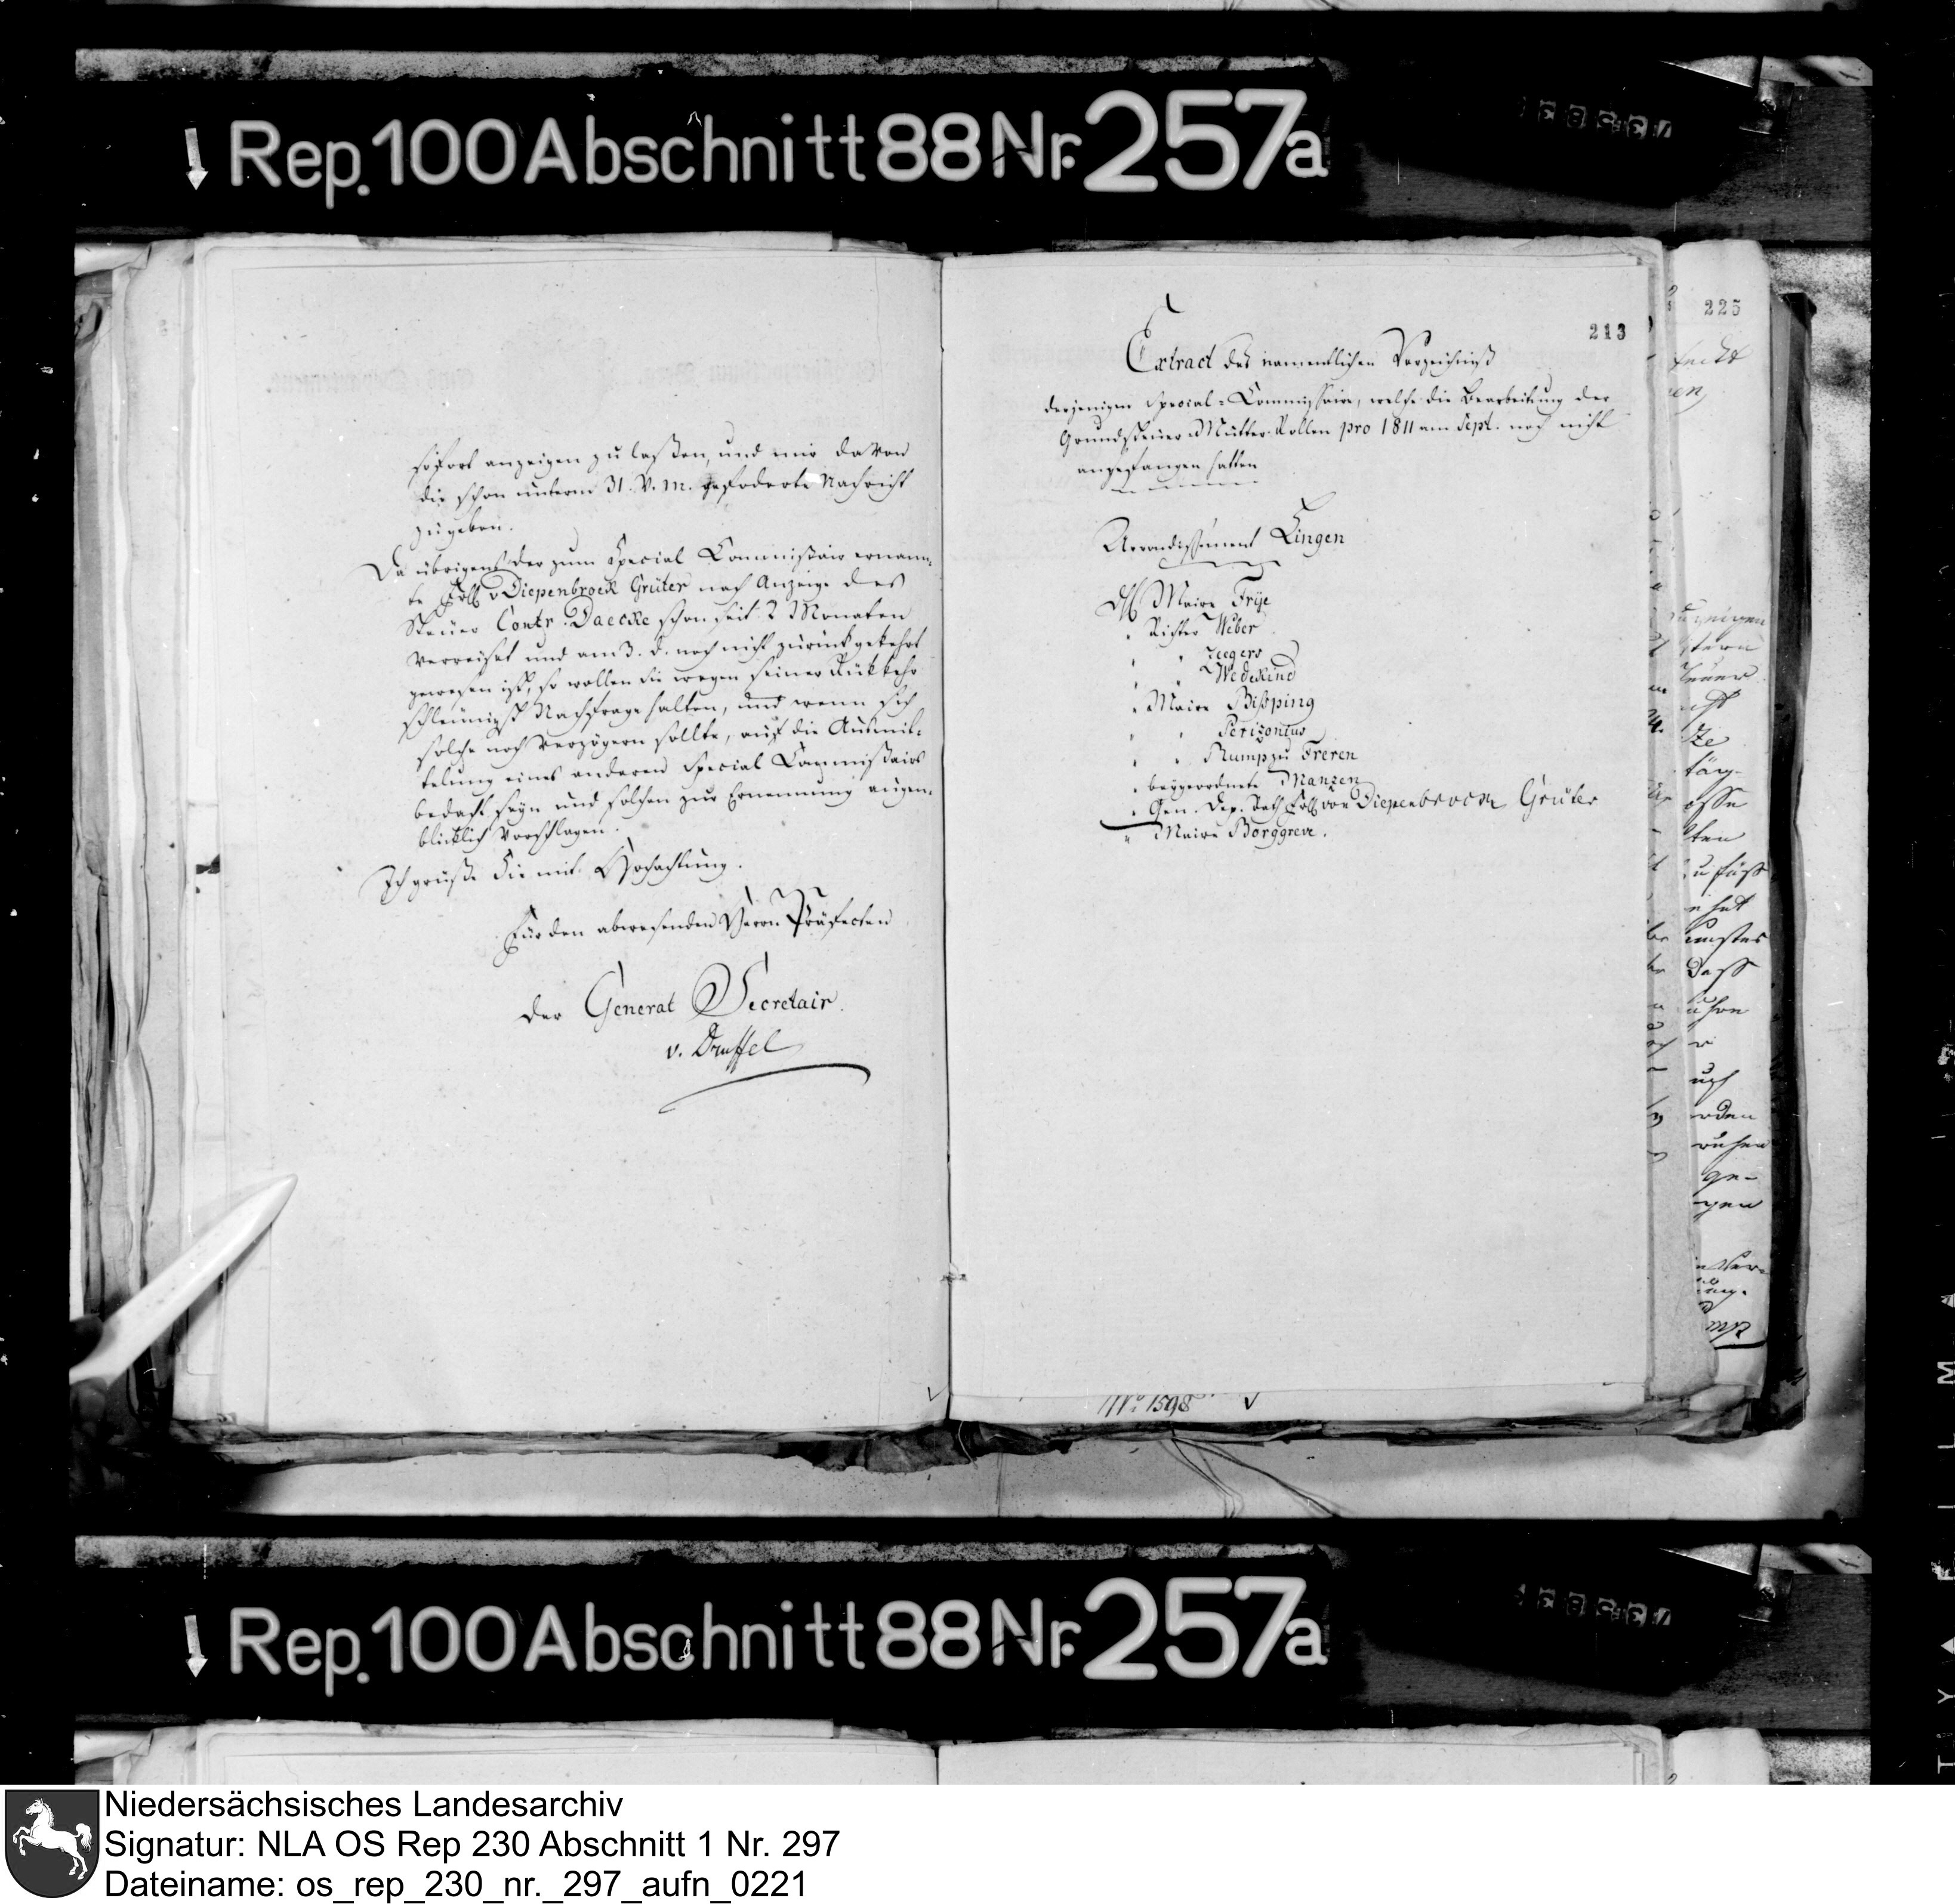 Rep. 100 Abschnitt 88 Nr. 257a
sofort anzeigen zu laßen, und mir davon
die schon unterm 31. V. M. gefoderte Nachricht
zugeben.
Da übrigens der zum Special Commißair ernann-
te v Diepenbroek Grüter nach Anzeige des
Steuer Contr. Daecke schon seit 2 Monaten
verreiset und am 3. d. noch nicht zurückgekehrt
gewesen ist, so wollen Sie wegen seiner Rükkehr
schleunigst Nachfrage halten, und wenn sich
solche noch verzögern sollte, auf die Ausmit-
telung eines anderen Special Commißairs
bedacht seyn und solchen zur Ernennung augen-
blicklich vorschlagen.
Ich grüße Sie mit Hochachtung.
Für den abwesenden Herrn Präfecten
der General Secretair.
v. Druffel
213
Extract des namentlichen Verzeichniß
derjenigen Special-Commissaire, welche die Bearbeitung der
Grundsteuer Mutter-Rollen pro 1811 am Sept. noch nicht
angefangen hatten
Arrondissement Lingen
Maire Frye
" Richter Weber
" " Zeegers
" " Wedekind
" Maire Bißping
" " Perizonius
" " Rump zu Freren
" beygeordnete Manzen
" Gen. Dep. Rath von Diepenbrock Grüter
" Maire Borggreve.
No 1598
225
Rep. 100 Abschnitt 88 Nr. 257a
Niedersächsisches Landesarchiv
Signatur: NLA OS Rep 230 Abschnitt 1 Nr. 297
Dateiname: os_rep_230_nr._297_aufn_0221